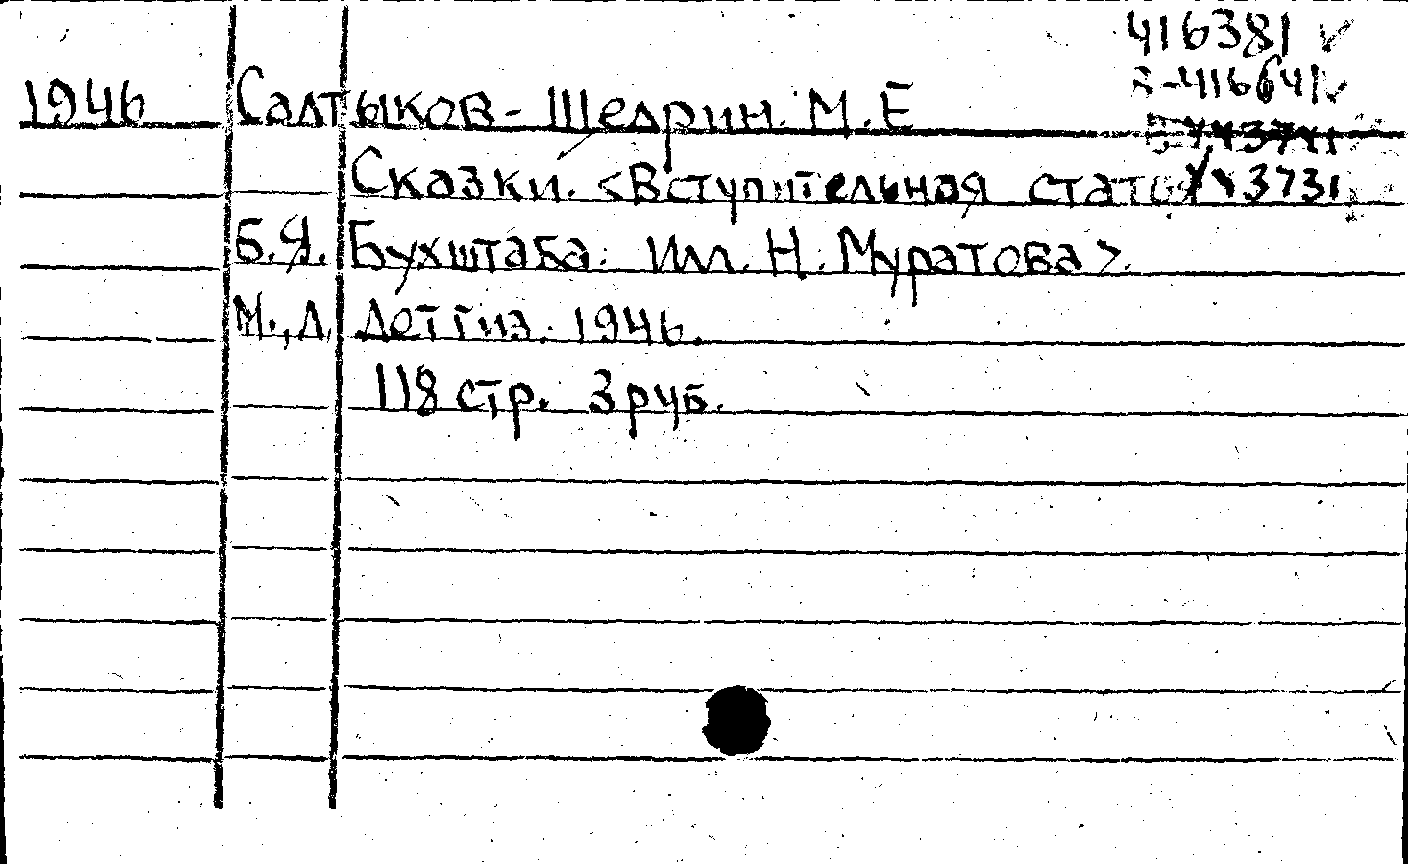 416381 ✓
1946 Салтыков-Щедрин. М.Е
Сказки. <Вступительная статья
Б.Я. Бухштаба. Илл. Н. Муратова>.
М., Л. Детгиз. 1946.
118 стр. 3 руб.